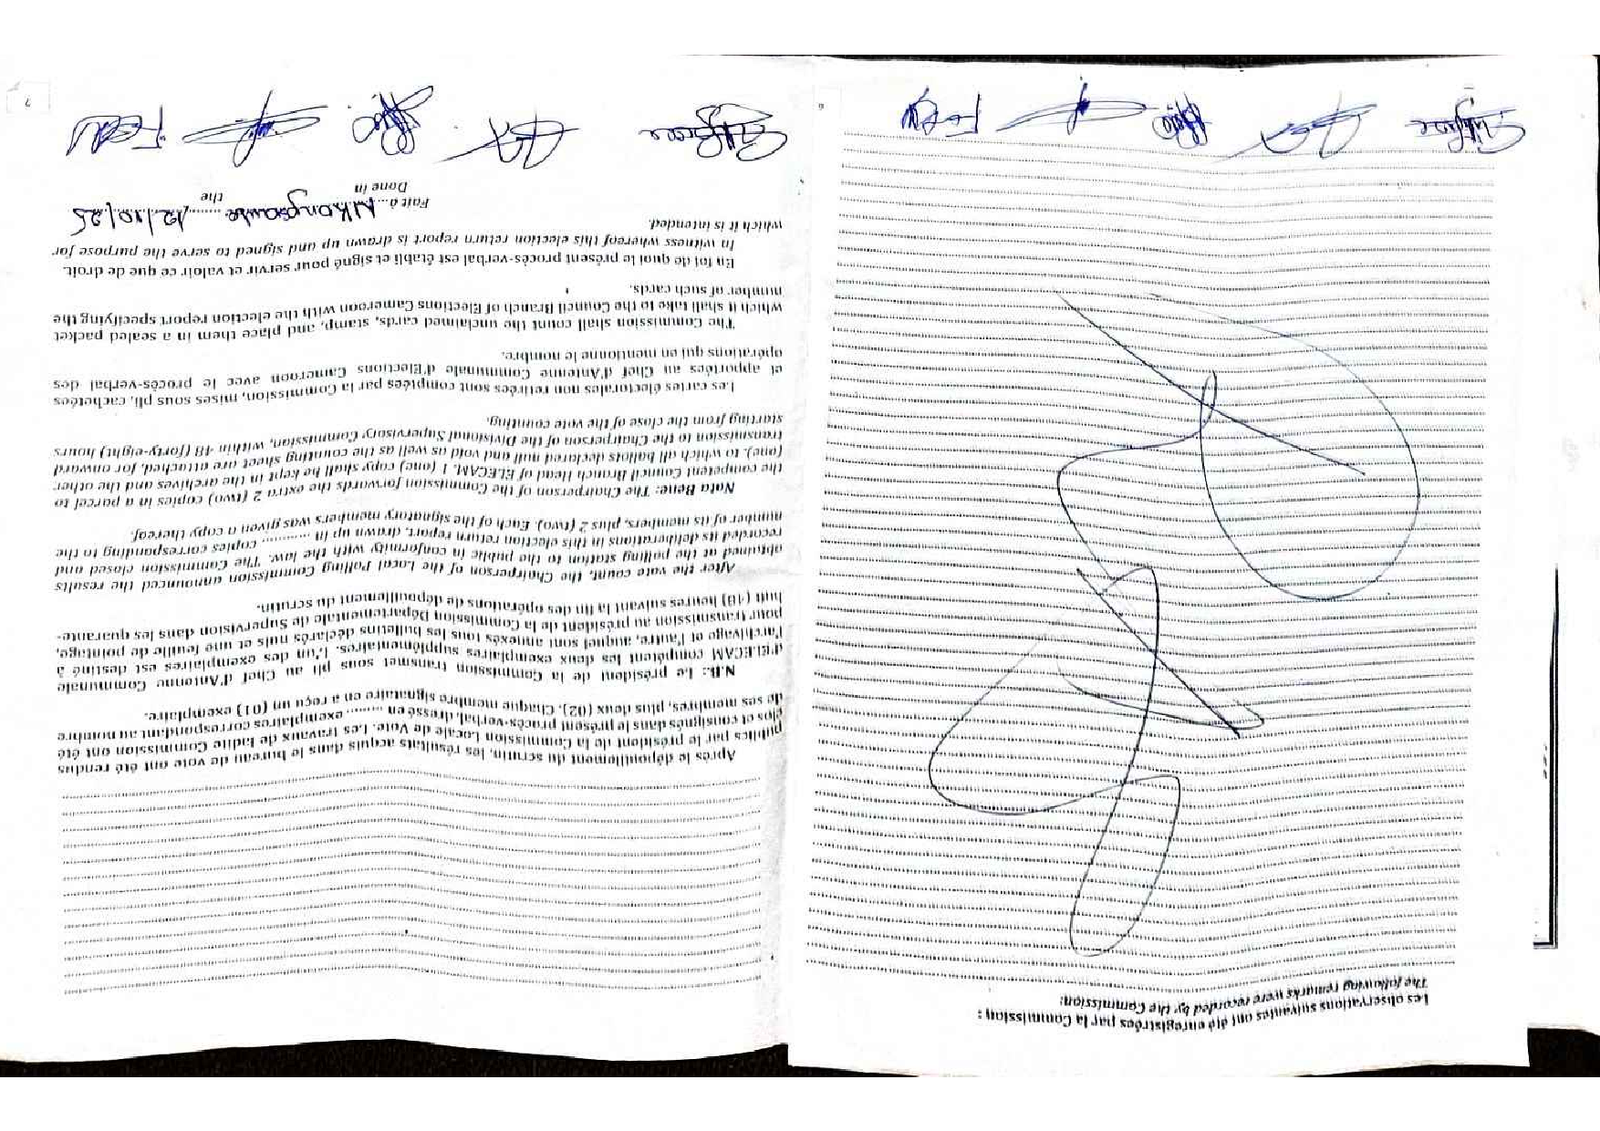 Les observations suivantes ont été enregistrées par la Commission :
The following remarks were recorded by the Commission:
6
Après le dépouillement du scrutin, les résultats acquis dans le bureau de vote ont été rendus
publics par le président de la Commission Locale de Vote. Les travaux de ladite Commission ont été
clos et consignés dans le présent procès-verbal, dressé en ........ exemplaires correspondant au nombre
de ses membres, plus deux (02). Chaque membre signataire en a reçu un (01) exemplaire.
N.B.: Le président de la Commission transmet sous pli au Chef d'Antenne Communale
d'ELECAM compétent les deux exemplaires supplémentaires. L'un des exemplaires est destiné à
l'archivage et l'autre, auquel sont annexés tous les bulletins déclarés nuls et une feuille de pointage,
pour transmission au président de la Commission Départementale de Supervision dans les quarante-
huit (48) heures suivant la fin des opérations de dépouillement du scrutin.
After the vote count, the Chairperson of the Local Polling Commission announced the results
obtained at the polling station to the public in conformity with the law. The Commission closed and
recorded its deliberations in this election return report, drawn up in ............ copies corresponding to the
number of its members, plus 2 (two). Each of the signatory members was given a copy thereof.
Nota Bene: The Chairperson of the Commission forwards the extra 2 (two) copies in a parcel to
the competent Council Branch Head of ELECAM. 1 (one) copy shall be kept in the archives and the other
(one), to which all ballots declared null and void as well as the counting sheet are attached, for onward
transmission to the Chairperson of the Divisional Supervisory Commission, within 48 (forty-eight) hours
starting from the close of the vote counting.
Les cartes électorales non retirées sont comptées par la Commission, mises sous pli, cachetées
et apportées au Chef d'Antenne Communale d'Elections Cameroon avec le procès-verbal des
opérations qui en mentionne le nombre.
The Commission shall count the unclaimed cards, stamp, and place them in a sealed packet
which it shall take to the Council Branch of Elections Cameroon with the election report specifying the
number of such cards.
En foi de quoi le présent procès-verbal est établi et signé pour servir et valoir ce que de droit.
In witness whereof this election return report is drawn up and signed to serve the purpose for
which it is intended.
Fait à.... Nkongsamba ........, 12/10/25
Done in the
7